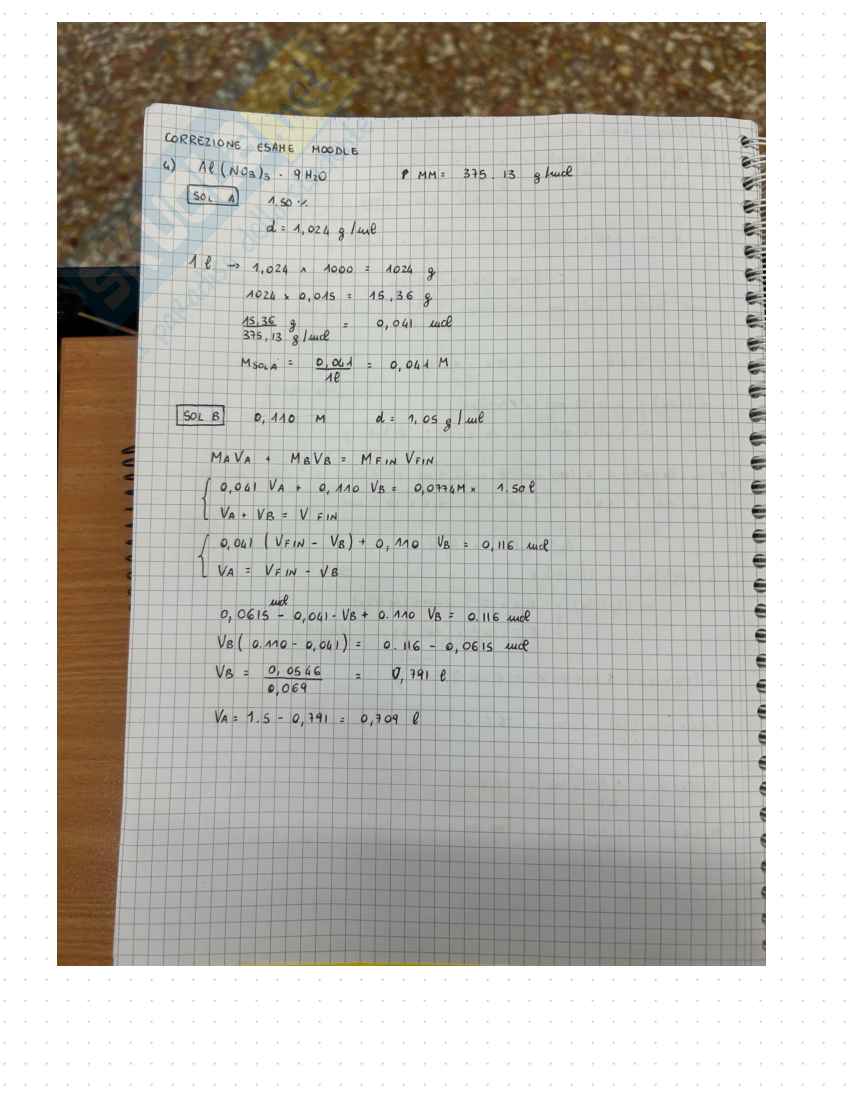 CORREZIONE ESAME MOODLE
4) Al(NO3)3 · 9H2O MM = 375.13 g/mol
SOL A 1,50 %
d = 1,024 g/ml
1 l → 1,024 × 1000 = 1024 g
1024 × 0,015 = 15,36 g
15,36 g / 375,13 g/mol = 0,041 mol
MSOLA = 0,041 / 1l = 0,041 M
SOL B 0,110 M d = 1,05 g/ml
MAVA + MBVB = MFIN VFIN
0,041 VA + 0,110 VB = 0,0774M × 1.50 l
VA + VB = V FIN
0,041 (VFIN - VB) + 0,110 VB = 0,116 mol
VA = VFIN - VB
0,0615 mol - 0,041 · VB + 0.110 VB = 0.116 mol
VB (0.110 - 0,041) = 0.116 - 0,0615 mol
VB = 0,0546 / 0,069 = 0,791 l
VA = 1.5 - 0,791 = 0,709 l